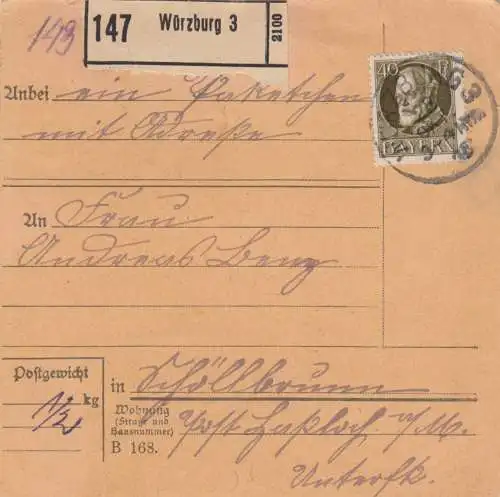 149
147 Würzburg 3 2100
40 Pf
BAYERN
Anbei ein Paketchen
mit Adreße
An Frau
Andreas Benz
Postgewicht
1/2 kg
in Schöllbrunn
Wohnung
(Straße und
Hausnummer)
Post Haßloch a/M.
B 168.
Unterfk.